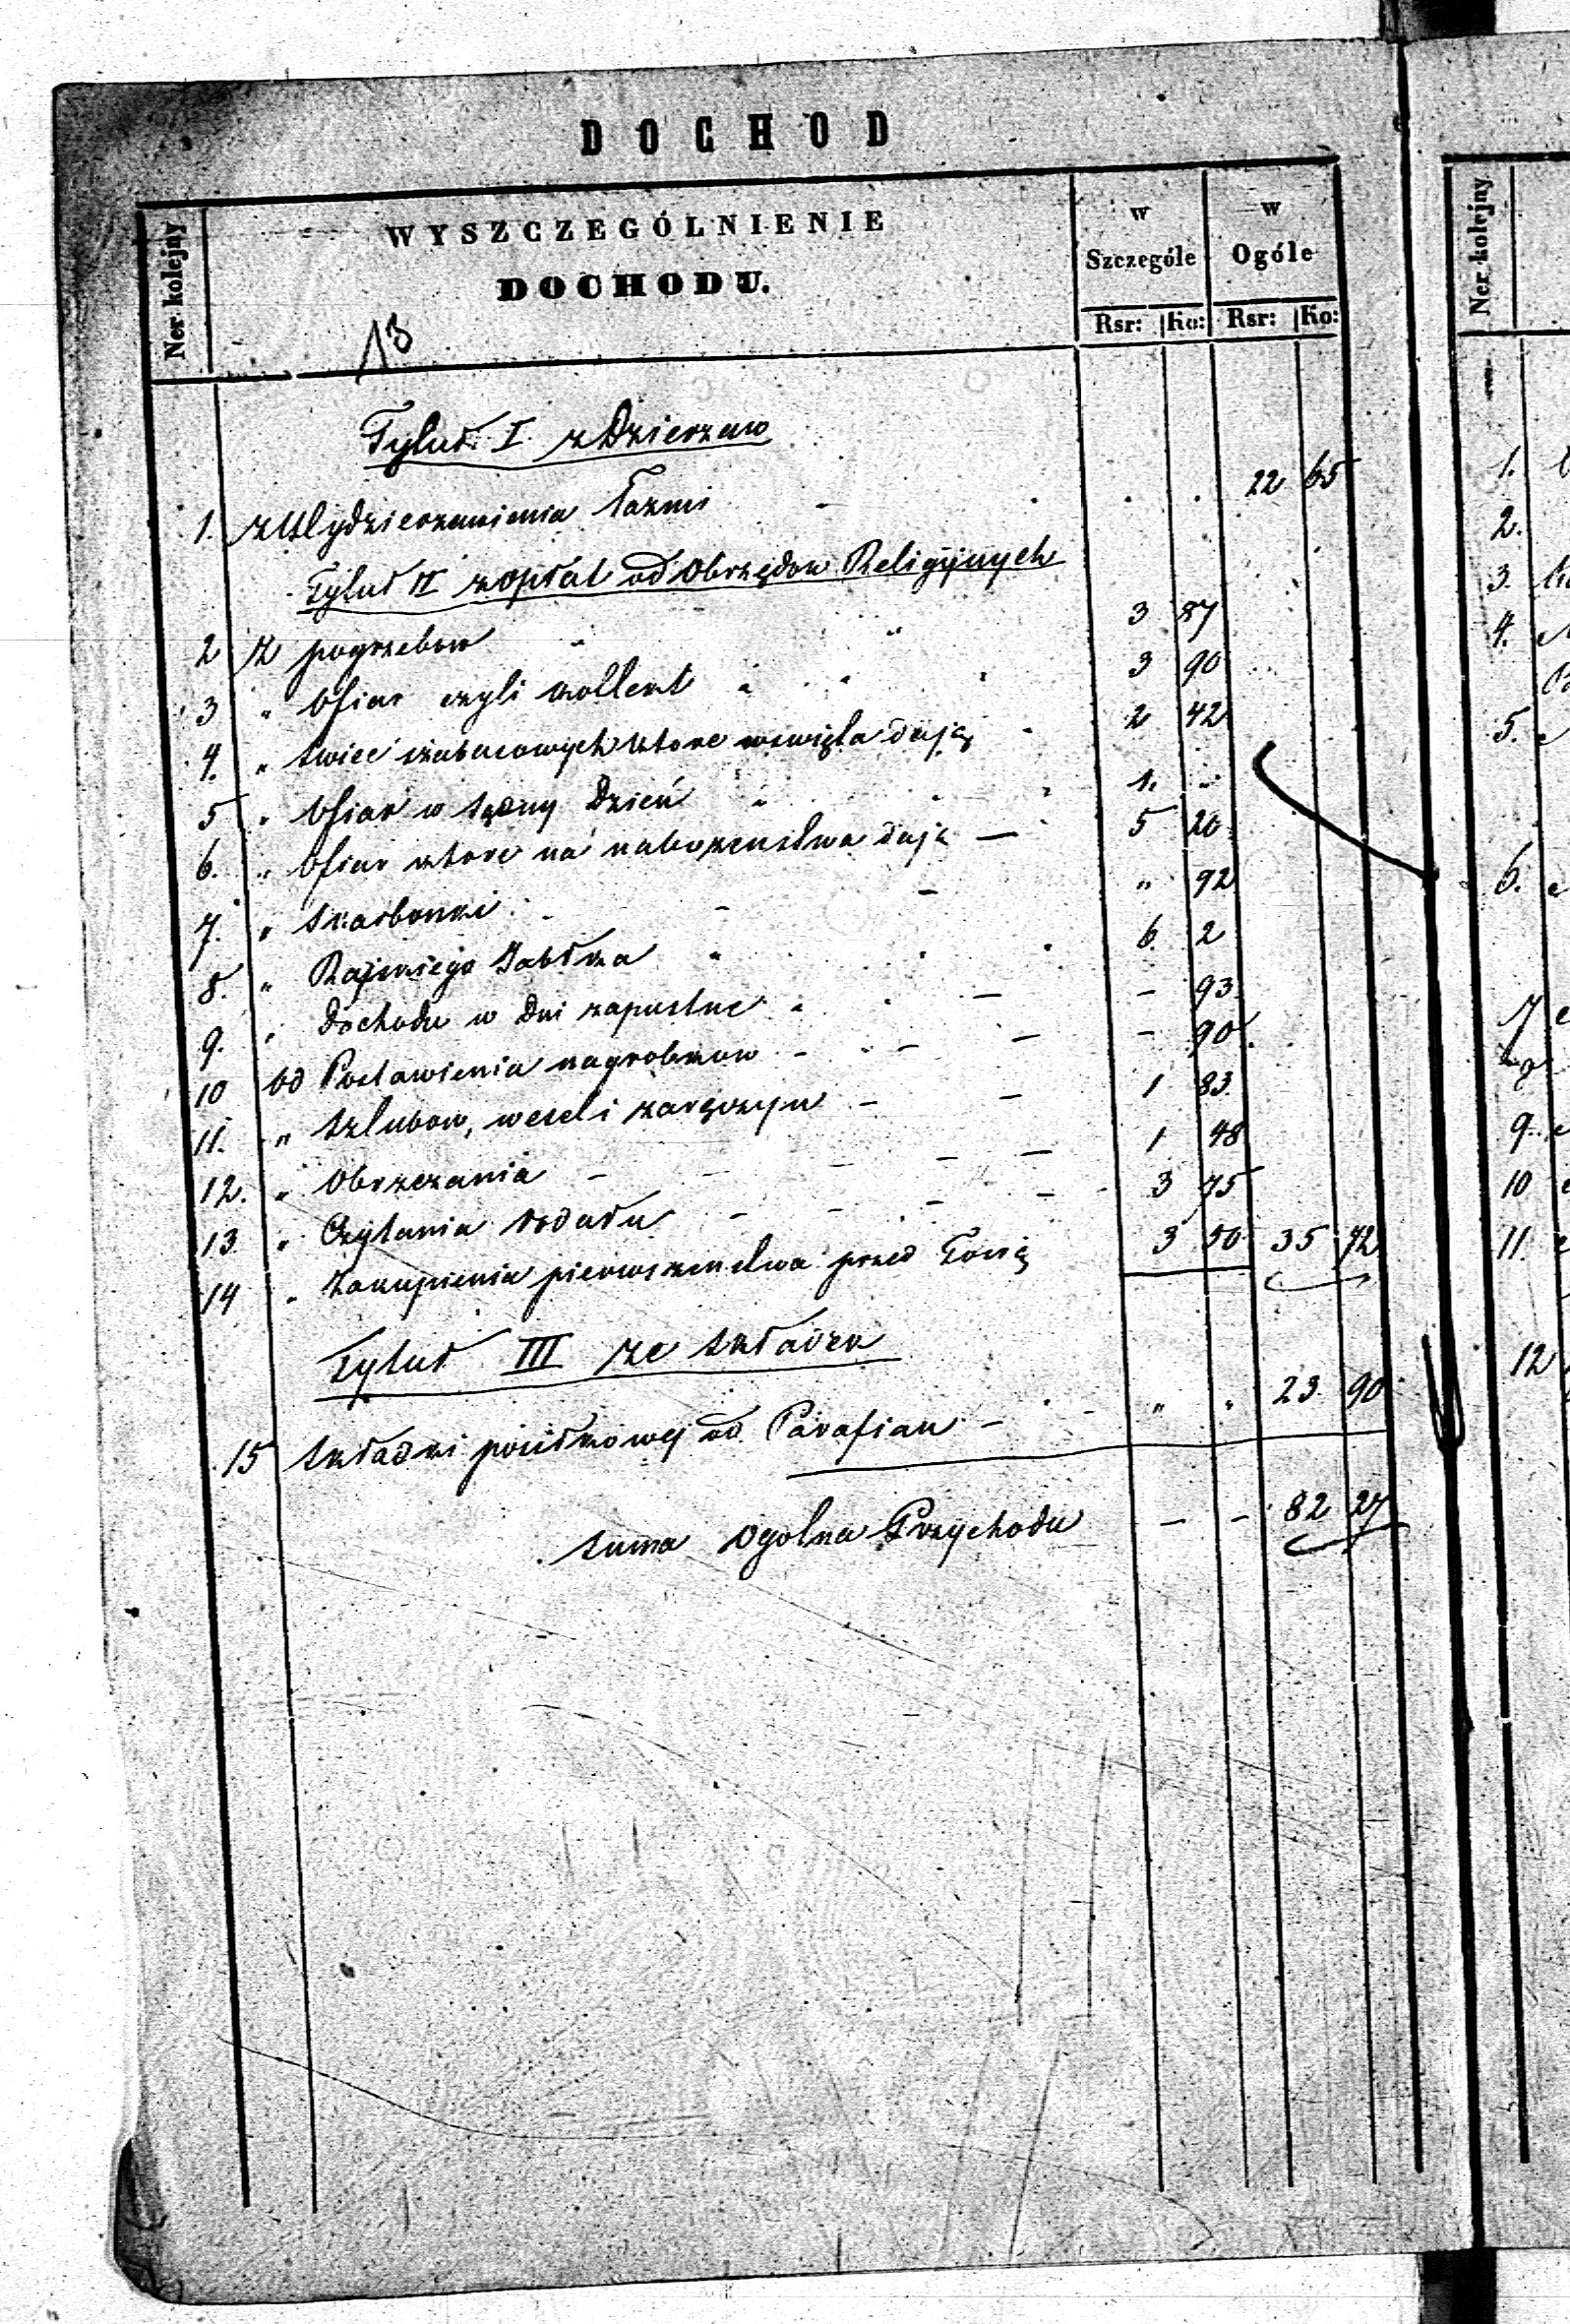 DOCHOD
Ner kolejny
WYSZCZEGÓLNIENIE
DOCHODU.
w Szczególe
w Ogóle
Rsr: Ko: Rsr: Ko:
13
Tytuł I z Dzierzaw
1. z Wydzierzawienia Łazni - . . . 22 65
Tytuł II z opłat od Obrzędow Religijnych
2 Z pogrzebow " " 3 87
3 " Ofiar czyli kollekt " " " 3 90
4. " swiec szabasowych ktore w swięta dają - 2 42
5 " Ofiar w Sądny Dzień " " " 1. "
6. " Ofiar ktore na nabozenstwa dają — 5 20
7. " Skarbonki - - — " 92
8. " Rajskiego Jabłka " . . 6 2
9. " Dochodu w Dni zapustne " - — - 93
10 Od Postawienia nagrobkow - - — — - 90
11. " Szlubow, wesel i zaręczyn - — 1 83
12. " Obrzezania - - — — — 1 48
13 " Czytania rodału - - - — 3 75
14 " Zakupienia pierwszenstwa przed Torią 3 50 35 72
Tytuł III ze składek
15 Składki posiłkowej od Parafian - - - " " 23 90
Suma Ogolna Przychodu - - 82 27
Ner kolejny
1.
2.
3.
4.
5.
6.
7
9
10
11
12